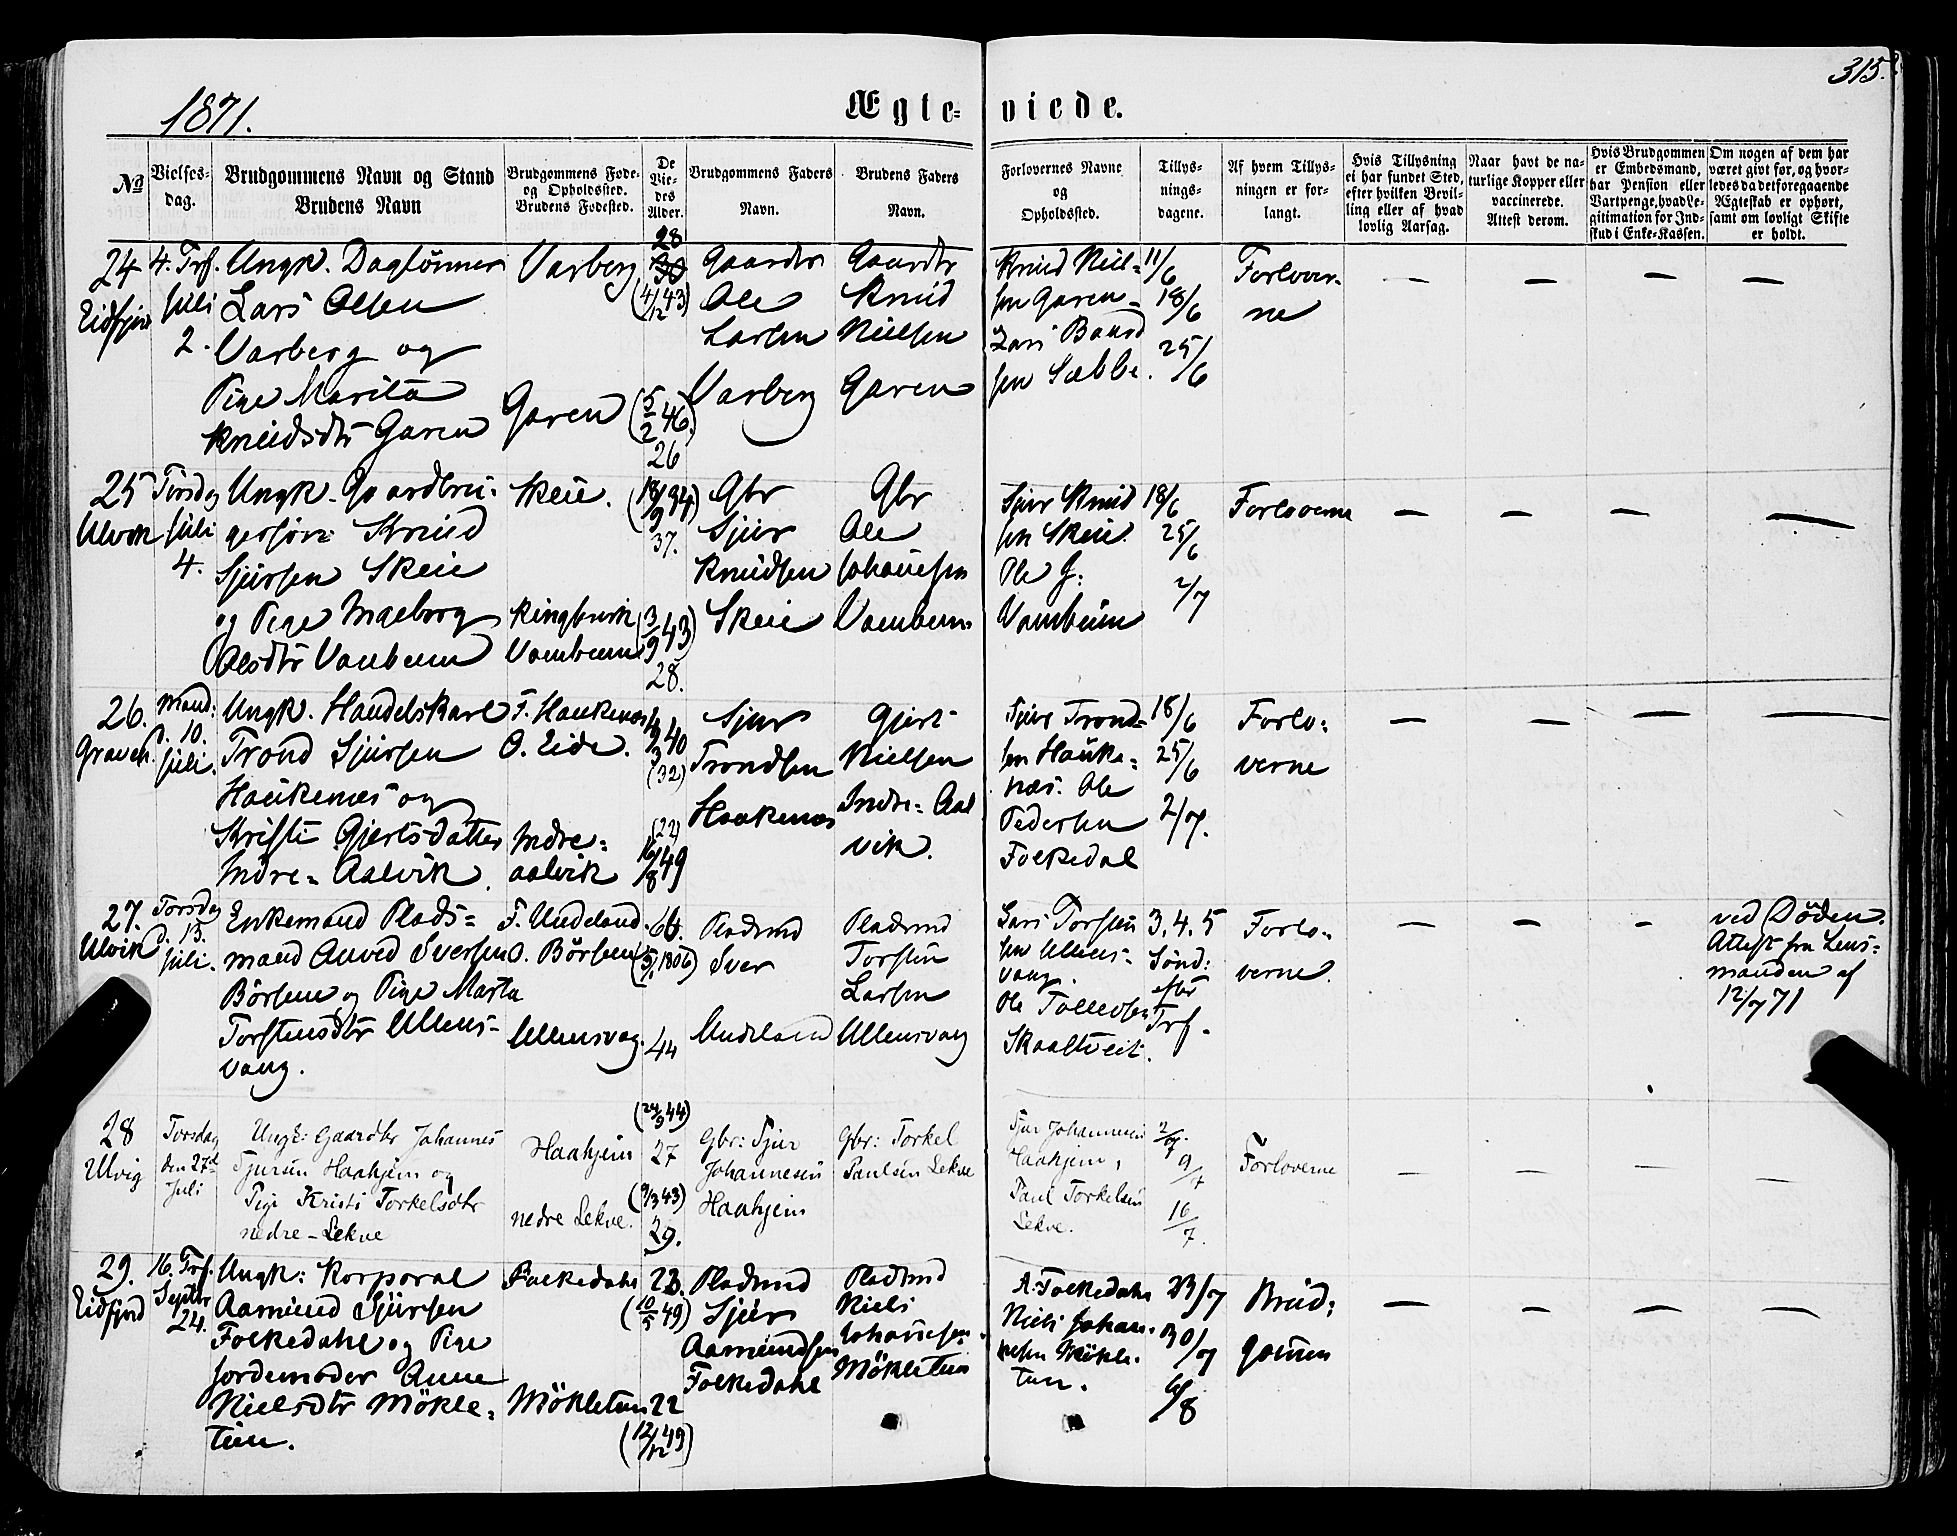 315.
1871.
Ægte= viede.
No
Vielses-
dag.
Brudgommens Navn og Stand
Brudens Navn
Brudgommens Føde-
og Opholdssted.
Brudens Fødested.
De
Vie-
des
Alder.
Brudgommens Faders
Navn.
Brudens Faders
Navn.
Forlovernes Navne
og
Opholdssted.
Tillys-
nings-
dagene.
Af hvem Tillys-
ningen er for-
langt.
Hvis Tillysning
ei har fundet Sted,
efter hvilken Bevil-
ling eller af hvad
lovlig Aarsag.
Naar havt de na-
turlige Kopper eller
vaccinerede.
Attest derom.
Hvis Brudgommen
er Embedsmand,
har Pension eller
Vartpenge, hvad Le-
gitimation for Ind-
skud i Enke-Kassen.
Om nogen af dem har
været givt før, og hvor-
ledes da det foregaaende
Ægteskab er ophørt,
samt om lovligt Skifte
er holdt.
24
Eidfjord
4. Trf.
juli
2.
Ungk. Daglönner
Lars Olsen
Varberg og
Pige Marita
Knudsdtr Garen
Varberg
Garen
28
30
(4/12 43)
(5/2 46)
26
Gaardbr
Ole
Larsen
Varberg
Gaardbr
Knud
Nielsen
Garen
Knud Niel-
sen Garen-
Lars Baard
sen Sæbbe.
11/6
18/6
25/6
Forlover-
ne
— — — —
25
Ulvik
Tirsdag
juli
4.
Ungk. Gaardbru-
gersøn: Knud
Sjursen Skeie
og Pige Ingeborg
Olsdtr Vambum
Skeie.
Ringbuik
Vambum
37.
(3/9 43)
28.
Gbr
Sjur
Knudsen
Skeie
Gbr
Ole
Johannesen
Vambum
Sjur Knud
sen Skeie.
Ole J:
Vambum
18/6
25/6
2/7
Forloverne
— — — —
26.
Graven.
Mand:
d. 10.
juli.
Ungk. Handelskarl
Trond Sjursen
Haukenæs og
Kristi Gjertsdatter
Indre= Aalvik.
F. Haukenæs
O. Eide.
Indre=
aalvik
40
(32)
(22)
16/8 49
Sjur
Trondsen
Haukenæs
Gjert
Nielsen
Indre= Aal
vik.
Sjur Trond=
sen Hauke=
næs. Ole
Pedersen
Folkedal
18/6
25/6
2/7.
Forlo=
verne
— — — —
27.
Ulvik
Torsdag
d. 13.
juli.
Enkemand Plads=
mand Anved Iversen
Börsem og Pige Marta
Torstensdtr Ullens-
vang.
F. Undeland.
O. Börsem
Ullensvag.
(5/1 1806)
44
Pladsmd
Iver
Undeland
Pladsmd
Torstein
Larsen
Ullensvang
Lars Torsten
sen Ullens-
vang.
Ole Tollevsen
Skaaltveit.
3. 4. 5
Sönd:
efter
Trf.
Forlo-
verne.
— — —
ved Döden.
Attest fra Lens=
manden af
12/7 71
28
Ulvig
Torsdag
den 27d
Juli
Ungk: Gaardbr Johannes
Sjursen Haahjem og
Pige Kristi Torkelsdtr
nedre-Lekve
Haahjem
nedre Lekve.
(24/9 44)
27
(9/3 43)
29.
Gbr: Sjur
Johannesen
Haahjem
Gbr: Torkel
Paulsen Lekve
Sjur Johannesen
Haahjem,
Paul Torkelsen
Lekve.
2/7.
9/7
16/7.
Forloverne
— — — —
29.
Eidfjord
16. Trf.
Septbr
24.
Ungk: Korporal
Aamund Sjursen
Folkedahl og Pige
jordemoder Anne
Nielsdtr Mökle=
tun.
Folkedahl
Mökletun
(10/5 49)
22
(12/12 49)
Pladsmd
Sjur
Aamundsen
Folkedahl
Pladsmd
Niels
Johannesen
Mökletun
A. Folkedahl
Niels Johan-
nesen Mökle-
tun.
23/7
30/7
6/8
Brud:
gommen
— — — —